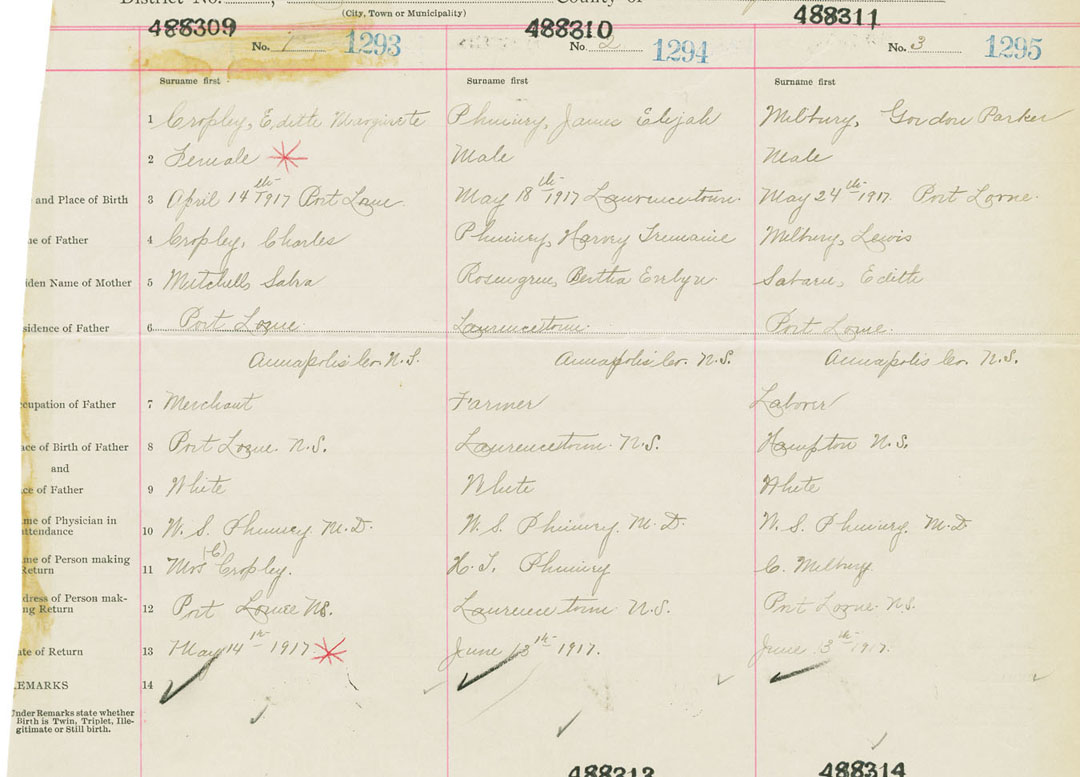 District No. , County of
(City, Town or Municipality)
488309 488310 488311
No. 1 1293 No. 2 1294 No. 3 1295
Surname first Surname first Surname first
1 Cropley, Edith Margirete Phinney, James Elijah Milbury, Gordon Parker
2 Female Male Male
and Place of Birth 3 April 14th 1917 Port Lorne May 18th 1917 Lawrencetown. May 24th 1917. Port Lorne.
e of Father 4 Cropley, Charles Phinney, Harvey Tremaine Milbury, Lewis
iden Name of Mother 5 Mitchell, Sabra Bertha Evelyn Edith
sidence of Father 6 Port Lorne Lawrencetown. Port Lorne.
Annapolis Co. N.S. Annapolis Co. N.S. Annapolis Co. N.S.
cupation of Father 7 Merchant Farmer Laborer
ace of Birth of Father 8 Port Lorne. N.S. Lawrencetown. N.S. Hampton N.S.
and
ce of Father 9 White White White
me of Physician in
ttendance 10 W. S. Phinney. M.D. W. S. Phinney. M.D. W. S. Phinney. M.D
me of Person making
Return 11 Mrs (C) Cropley. H. T. Phinney C. Milbury.
dress of Person mak-
ng Return 12 Port Lorne NS. Lawrencetown. N.S. Port Lorne. N.S.
ate of Return 13 May 14th 1917. June 13th 1917. June 3th 1917.
EMARKS 14
Under Remarks state whether
Birth is Twin, Triplet, Ille-
gitimate or Still birth.
488313 488314